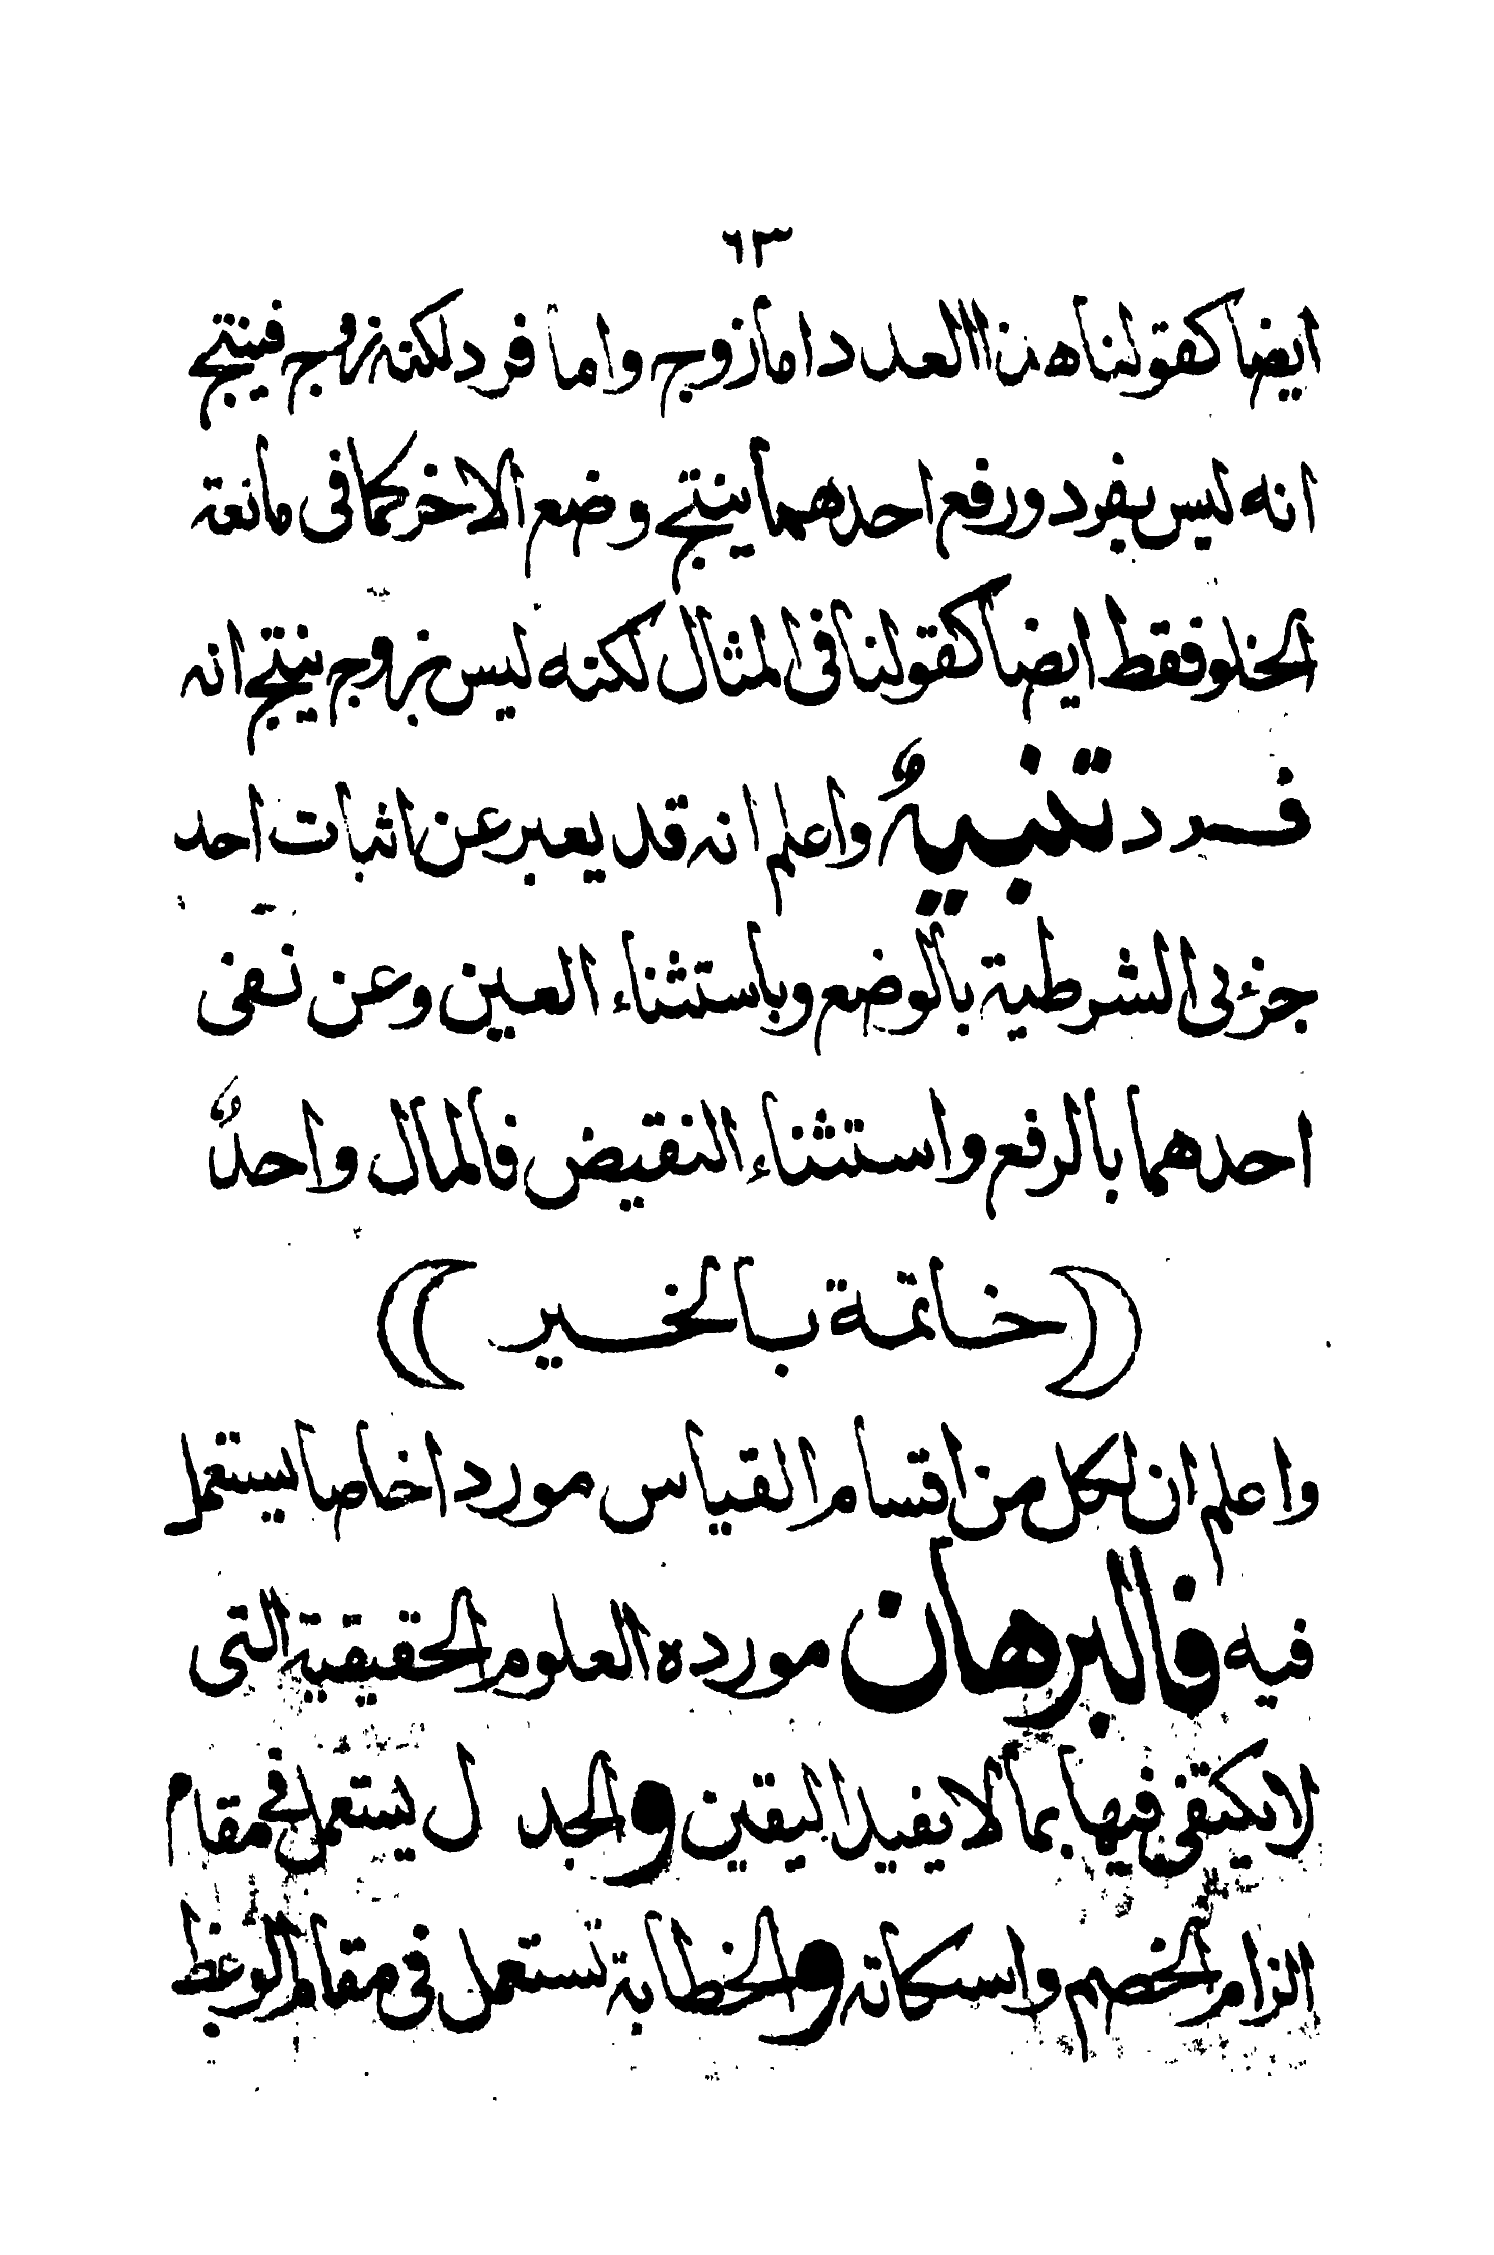 ٦٣
ايضا كقولنا هذا العدد اما زوج واما فرد لكنه زوج فينتج
انه ليس بفرد ورفع احدهما ينتج وضع الاخر كما فى مانعة
الخلو فقط ايضا كقولنا فى المثال لكنه ليس بزوج ينتج انه
فرد تنبيهٌ واعلم انه قد يعبر عن اثبات احد
جزءى الشرطية بالوضع وباستثناء العين وعن نفى
احدهما بالرفع واستثناء النقيض فالمال واحدٌ
(خاتمة بالخير)
واعلم ان لكل من اقسام القياس موردا خاصا يستعمل
فيه فالبرهان مورده العلوم الحقيقية التى
لا يكتفى فيها بما لا يفيد اليقين والجدل يستعمل فى مقام
الزام الخصم واسكاته والخطابة تستعمل فى مقام الوعظ